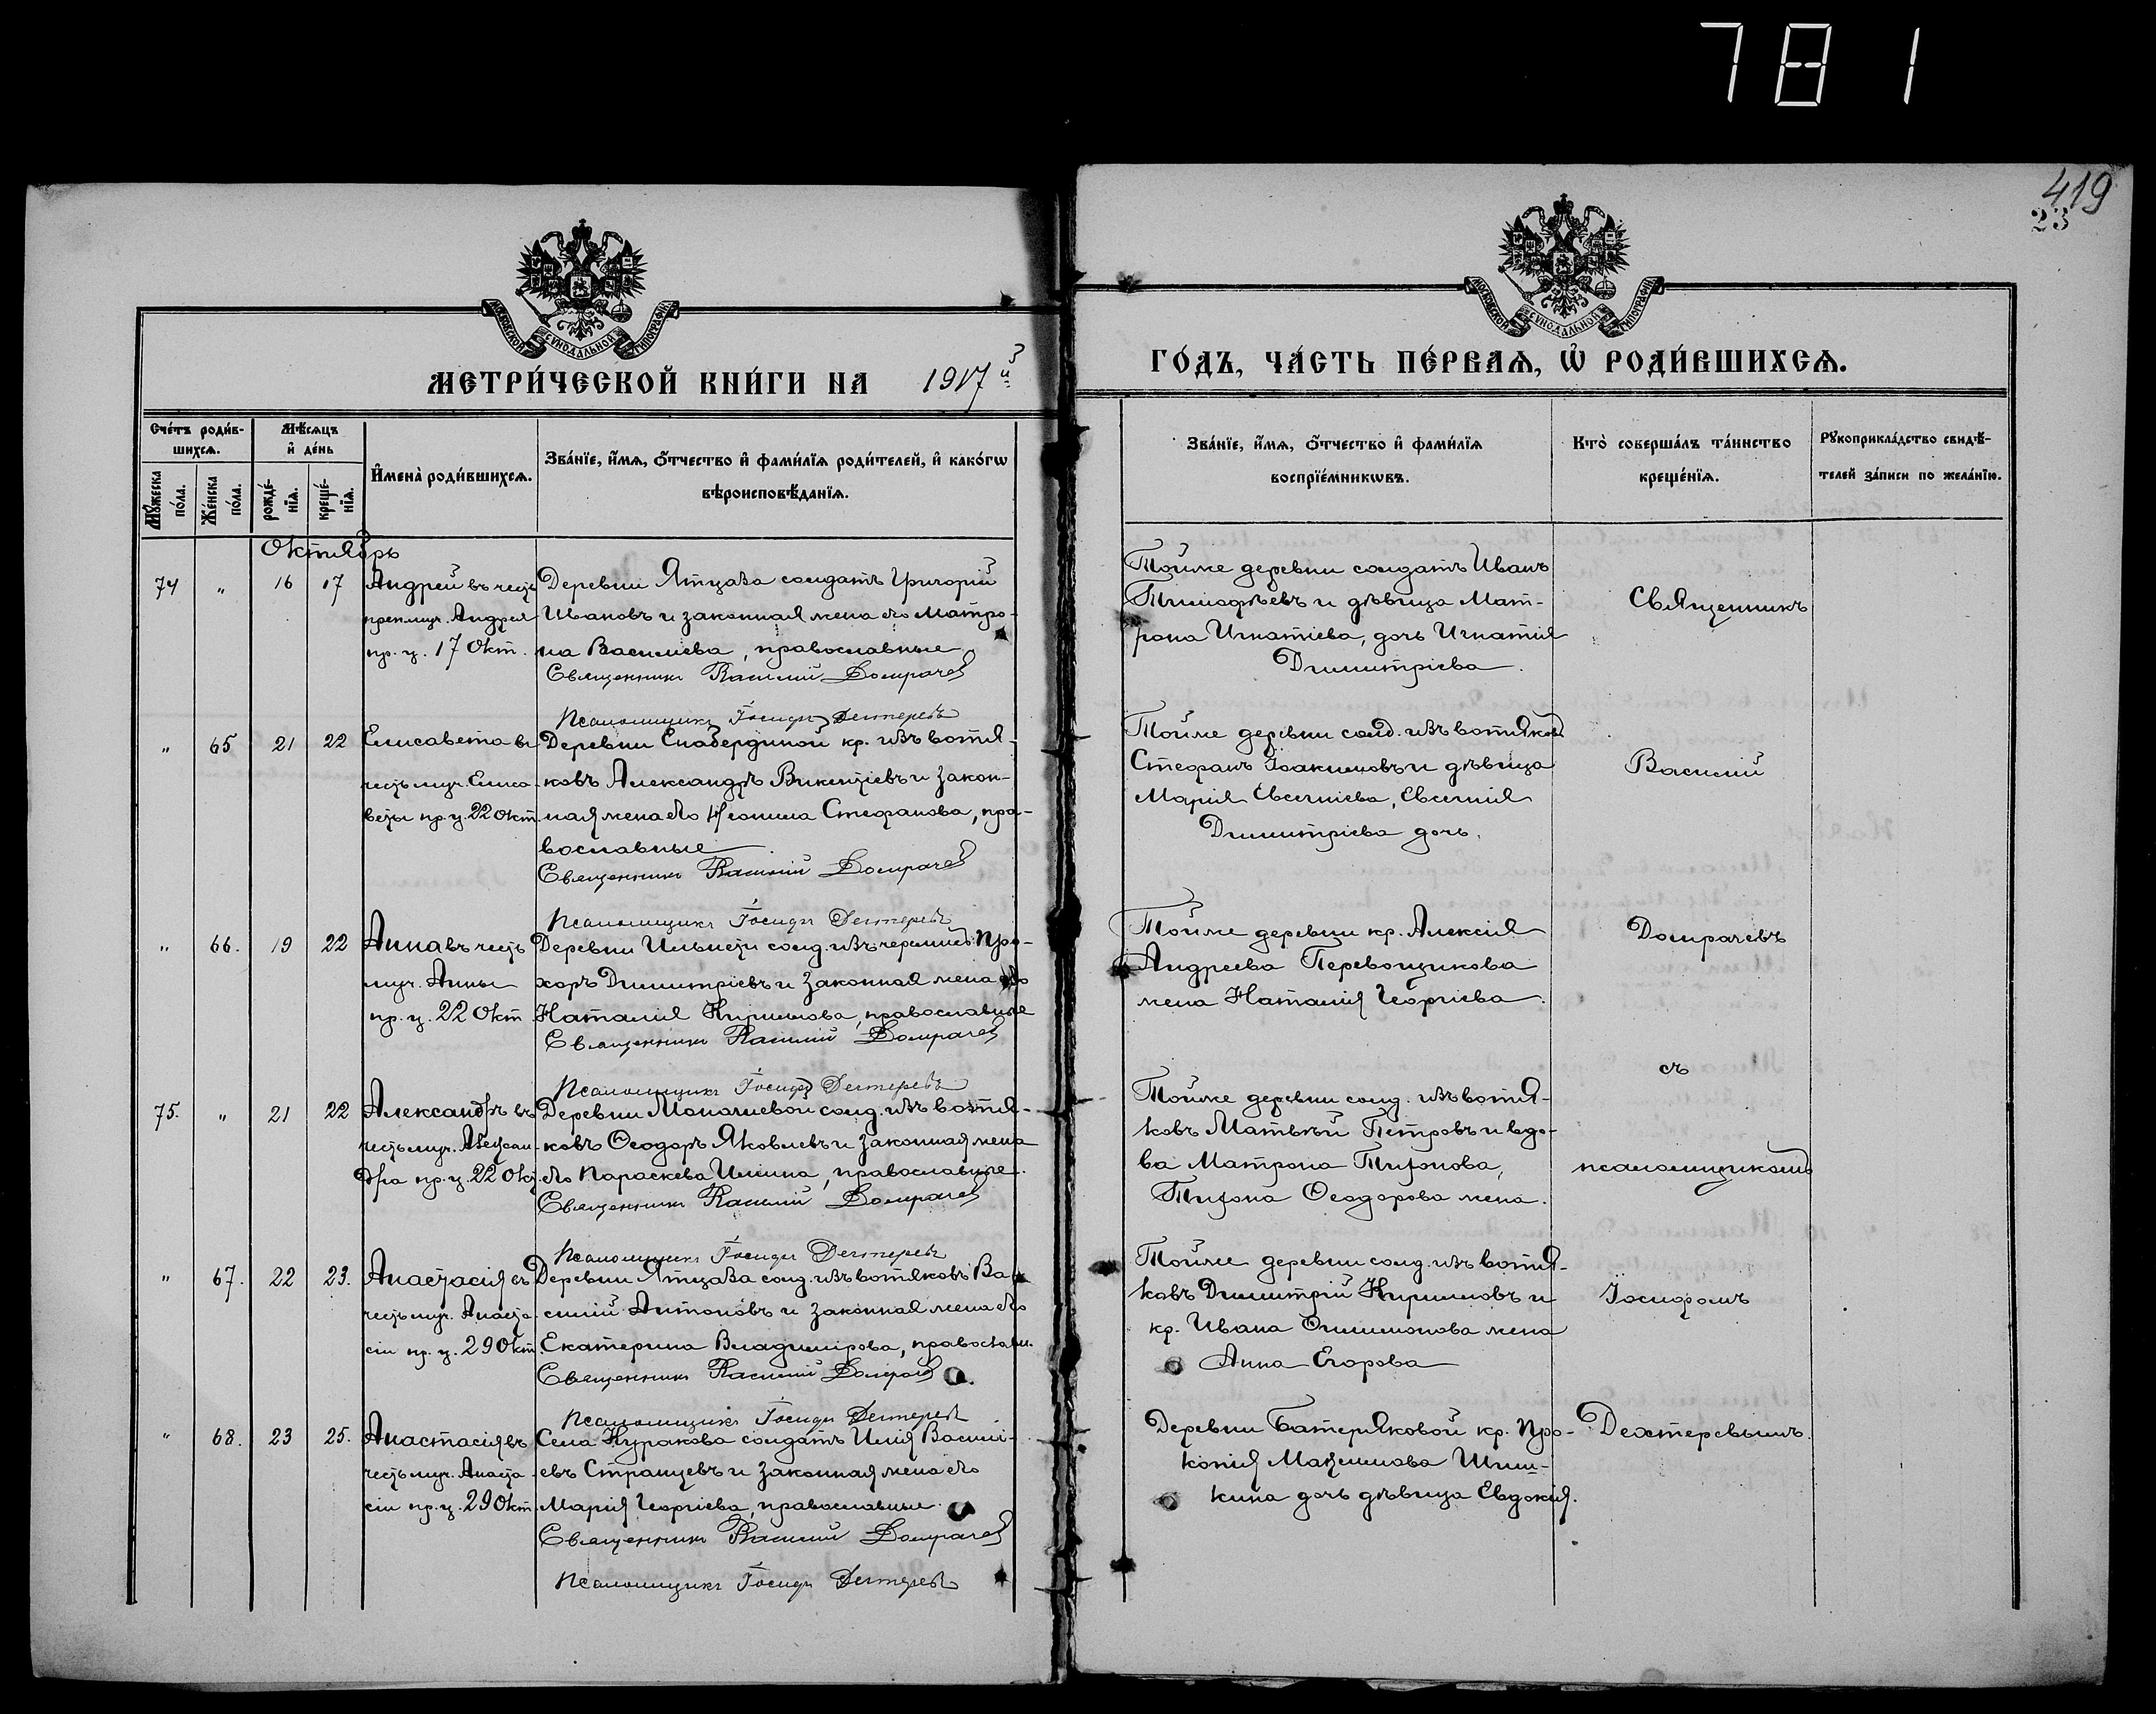 781
419
23
МОСКОВСКОЙ СѴНОДАЛЬНОЙ ТИПОГРАФІИ
МОСКОВСКОЙ СѴНОДАЛЬНОЙ ТИПОГРАФІИ
МЕТРИ́ЧЕСКОЙ КНИ́ГИ НА 1917й
ГО́ДЪ, ЧА́СТЬ ПЕ́РВАѦ, Ѡ҆ РОДИ́ВШИХСѦ.
Сче́тъ роди́в-
шихсѧ.
Мѣ́сѧцъ
и҆ де́нь
Мꙋ́жеска по́ла.
Же́нска по́ла.
рожде́-
нїѧ.
креще́-
нїѧ.
И҆мена̀ роди́вшихсѧ.
Зва́нїе, и҆́мѧ, ѻ҆́тчество и҆ фами́лїѧ роди́телей, и҆ како́гѡ
вѣроисповѣ́данїѧ.
Зва́нїе, и҆́мѧ, ѻ҆́тчество и҆ фами́лїѧ
воспрїе́мникѡвъ.
Кто̀ соверша́лъ та́инство
креще́нїѧ.
Рꙋкоприкла́дство свидѣ́-
телей за́писи по жела́нїю.
Октябрь
74 " 16 17 Андрей въ честь
препмуч. Андрея
пр. ц. 17 Окт.
Деревни Ятцаза солдатъ Григорій
Ивановъ и законная жена его Матро-
на Василиева, православные
Священникъ Василій Домрачев
Псаломщикъ Іосифъ Дехтеревъ
Тойже деревни солдатъ Иванъ
Тимофѣевъ и дѣвица Мат-
рона Игнатіева, дочь Игнатія
Димитріева.
Священникъ
" 65 21 22 Елисавета въ
честь муч. Елиса-
веты пр. ц. 22 Окт.
Деревни Снабердиной кр. изъ вотя-
ковъ Александръ Викентіевъ и закон-
ная жена его Неонила Стефанова, пра-
вославные
Священникъ Василій Домрачев
Псаломщикъ Іосифъ Дехтеревъ
Тойже деревни солд. изъ вотяковъ
Стефанъ Іоакимовъ и дѣвица
Марія Евсегніева, Евсегнія
Димитріева дочь.
Василій
" 66. 19 22 Анна въ честь
муч. Анны
пр. ц. 22 Окт.
Деревни Ильнети солд. изъ черемис. Про-
хоръ Димитріевъ и законная жена его
Наталія Кирилова, православные
Священникъ Василій Домрачев
Псаломщикъ Іосифъ Дехтеревъ
Тойже деревни кр. Алексія
Андреева Перевощикова
жена Наталія Георгіева.
Домрачевъ
съ
75. " 21 22 Александръ въ
честь муч. Алексан-
дра пр. ц. 22 Окт.
Деревни Моначиевой солд. изъ вотя-
ковъ Ѳеодоръ Яковлевъ и законная жена
его Параскева Илина, православные.
Священникъ Василій Домрачев
Псаломщикъ Іосифъ Дехтеревъ
Тойже деревни солд. изъ вотя-
ковъ Матвѣй Петровъ и вдо-
ва Матрона Тихонова,
Тихона Ѳеодорова жена.
псаломщикомъ
" 67. 22 23. Анастасія въ
честь муч. Анаста-
сіи пр. ц. 29 Окт.
Деревни Ятцаза солд. изъ вотяковъ Ва-
силій Антоновъ и законная жена его
Екатерина Владимірова, православн.
Священникъ Василій Домрачев
Псаломщикъ Іосифъ Дехтеревъ
Тойже деревни солд. изъ вотя-
ковъ Димитрій Кириловъ и
кр. Ивана Филимонова жена
Анна Егорова
Іосифомъ
" 68. 23 25. Анастасія въ
честь муч. Анаста-
сіи пр. ц. 29 Окт.
Села Куракова солдатъ Илія Василі-
евъ Странцевъ и законная жена его
Марія Георгіева, православные.
Священникъ Василій Домрачев
Псаломщикъ Іосифъ Дехтеревъ
Деревни Батеряковой кр. Про-
копія Максимова Шиш-
кина дочь дѣвица Евдокія.
Дехтеревымъ.